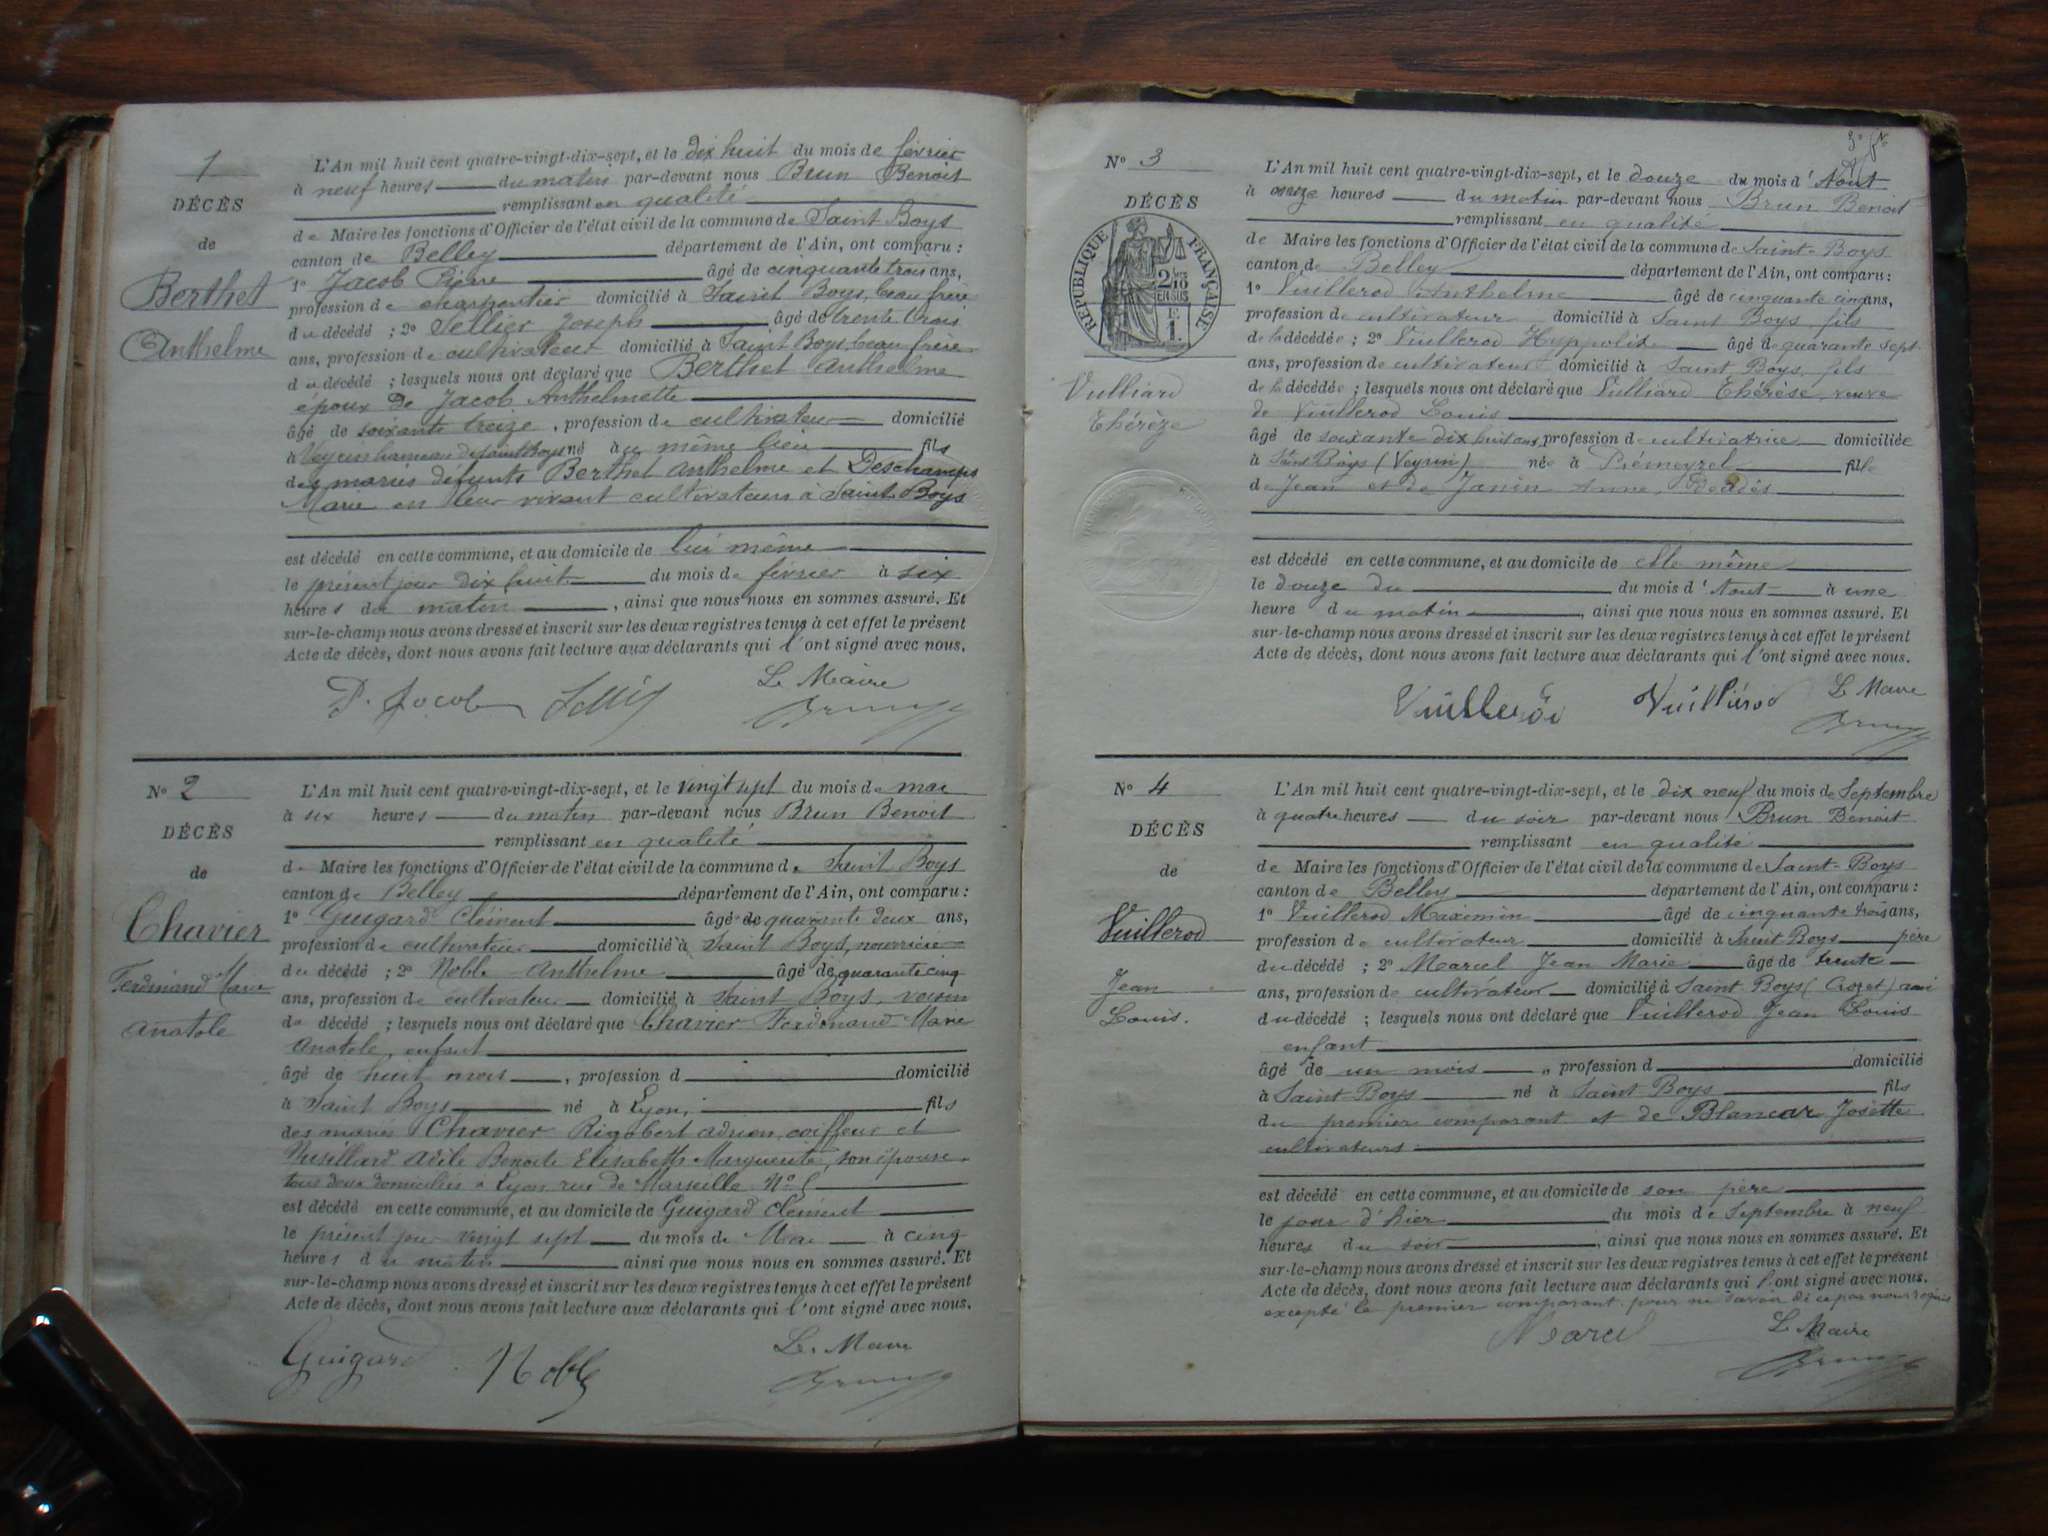 1
DÉCÈS
de
Berthet
Anthelme
L'An mil huit cent quatre-vingt-dix-sept, et le dix huit du mois de février
à neuf heures du matin par-devant nous Brun Benoit
remplissant en qualité
de Maire les fonctions d'Officier de l'état civil de la commune de Saint Boys
canton de Belley département de l'Ain, ont comparu :
1º Jacob Pierre âgé de cinquante trois ans,
profession de charpentier domicilié à Saint Boys, beau frère
du décédé ; 2º Sellier Joseph âgé de trente trois
ans, profession de cultivateur domicilié à Saint Boys, beau frère
du décédé ; lesquels nous ont déclaré que Berthet Anthelme
époux de Jacob Anthelmette
âgé de soixante treize, profession de cultivateur domicilié
à Veyrin hameau de Saint Boys né au même lieu fils
des mariés défunts Berthet Anthelme et Deschamps
Marie en leur vivant cultivateurs à Saint Boys
est décédé en cette commune, et au domicile de lui même
le présent jour dix huit du mois de février à six
heures du matin, ainsi que nous nous en sommes assuré. Et
sur-le-champ nous avons dressé et inscrit sur les deux registres tenus à cet effet le présent
Acte de décès, dont nous avons fait lecture aux déclarants qui l'ont signé avec nous.
P. Jacob Le Maire
Brun
Nº 2
DÉCÈS
de
Chavier
Ferdinand Marie
Anatole
L'An mil huit cent quatre-vingt-dix-sept, et le vingt sept du mois de mai
à six heures du matin par-devant nous Brun Benoit
remplissant en qualité
de Maire les fonctions d'Officier de l'état civil de la commune de Saint Boys
canton de Belley département de l'Ain, ont comparu :
1º Guigard Clément âgé de quarante deux ans,
profession de cultivateur domicilié à Saint Boys, nourricier
du décédé ; 2º Noble Anthelme âgé de quarante cinq
ans, profession de cultivateur domicilié à Saint Boys, voisin
du décédé ; lesquels nous ont déclaré que Chavier Ferdinand Marie
Anatole, enfant
âgé de huit mois, profession d domicilié
à Saint Boys né à Lyon, fils
des mariés Chavier Rigobert Adrien, coiffeur et
Adèle Benoite Elisabeth Marguerite, son épouse,
tous deux domiciliés à Lyon rue de Marseille Nº
est décédé en cette commune, et au domicile de Guigard Clément
le présent jour vingt sept du mois de Mai à cinq
heures du matin ainsi que nous nous en sommes assuré. Et
sur-le-champ nous avons dressé et inscrit sur les deux registres tenus à cet effet le présent
Acte de décès, dont nous avons fait lecture aux déclarants qui l'ont signé avec nous.
Guigard Noble Le Maire
Brun
Nº 3
DÉCÈS
RÉPUBLIQUE FRANÇAISE
2/10 EN SUS
F. 1.
Vulliard
Thérèze
L'An mil huit cent quatre-vingt-dix-sept, et le douze du mois d'Aout
à onze heures du matin par-devant nous Brun Benoit
remplissant en qualité
de Maire les fonctions d'Officier de l'état civil de la commune de Saint-Boys
canton de Belley département de l'Ain, ont comparu :
1º Vuillerod Anthelme âgé de cinquante cinq ans,
profession de cultivateur domicilié à Saint Boys, fils
de la décédée ; 2º Vuillerod Hyppolite âgé de quarante sept
ans, profession de cultivateur domicilié à Saint Boys, fils
de la décédée ; lesquels nous ont déclaré que Vulliard Thérèse, veuve
de Vuillerod Louis
âgé de soixante dix huit ans, profession de cultivatrice domiciliée
à St Boys (Veyrin) née à Prémeyzel fille
de Jean et de Janin Anne, décédés
est décédé en cette commune, et au domicile de elle même
le douze du du mois d'Aout à une
heure du matin, ainsi que nous nous en sommes assuré. Et
sur-le-champ nous avons dressé et inscrit sur les deux registres tenus à cet effet le présent
Acte de décès, dont nous avons fait lecture aux déclarants qui l'ont signé avec nous.
Vuillerod Vuillérod Le Maire
Brun
Nº 4
DÉCÈS
de
Vuillerod
Jean
Louis.
L'An mil huit cent quatre-vingt-dix-sept, et le dix neuf du mois de Septembre
à quatre heures du soir par-devant nous Brun Benoit
remplissant en qualité
de Maire les fonctions d'Officier de l'état civil de la commune de Saint-Boys
canton de Belley département de l'Ain, ont comparu :
1º Vuillerod Maximin âgé de cinquante trois ans,
profession de cultivateur domicilié à Saint Boys père
du décédé ; 2º Marcel Jean Marie âgé de trente
ans, profession de cultivateur domicilié à Saint Boys (Crozet) ami
du décédé ; lesquels nous ont déclaré que Vuillerod Jean Louis
enfant
âgé de un mois, profession d domicilié
à Saint-Boys né à Saint-Boys fils
du premier comparant et de Blancar Josette
cultivateurs
est décédé en cette commune, et au domicile de son père
le jour d'hier du mois de Septembre à neuf
heures du soir, ainsi que nous nous en sommes assuré. Et
sur-le-champ nous avons dressé et inscrit sur les deux registres tenus à cet effet le présent
Acte de décès, dont nous avons fait lecture aux déclarants qui l'ont signé avec nous.
excepté le premier comparant pour ne savoir de ce par nous requis
Marcel Le Maire
Brun